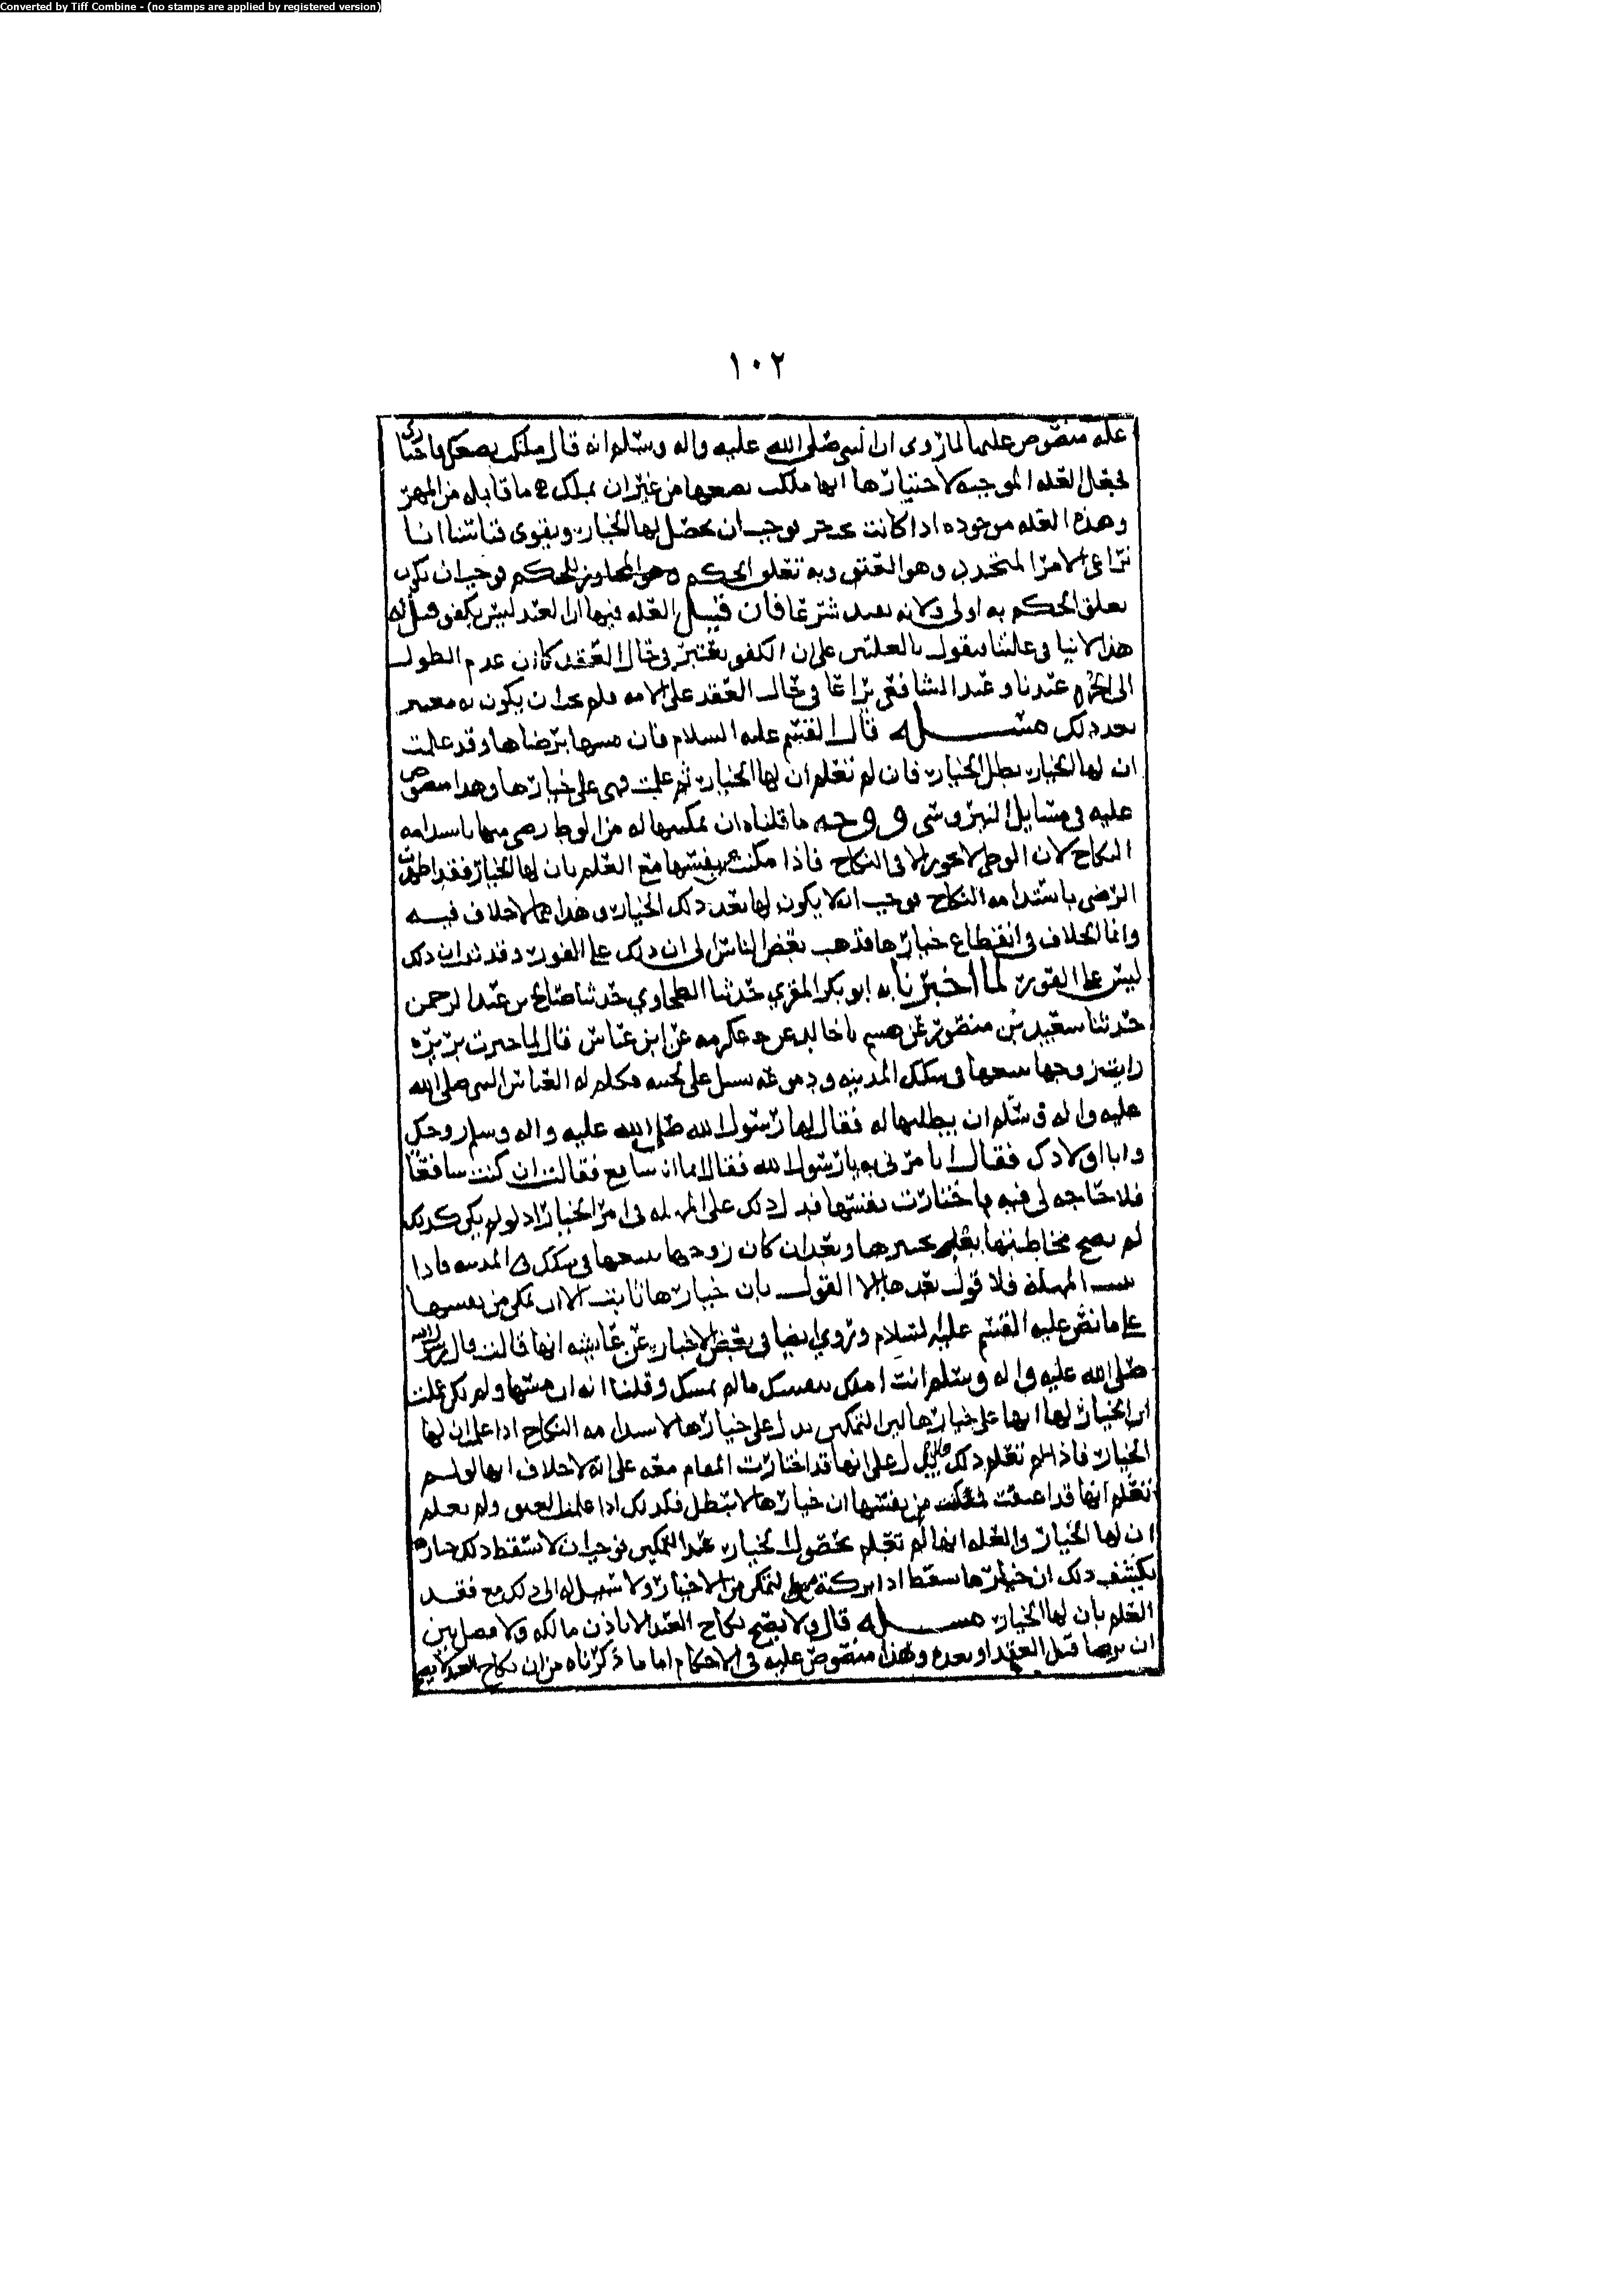 Converted by Tiff Combine - (no stamps are applied by registered version)
١٠٢
علة منصوص عليها لما روي ان النبي صلى الله عليه واله وسلم انه قال ملكت بضعك فاختاري
فجعل العله الموجبه لاختيارها انها ملكت بضعها من غير ان يملك ما قابله من المهر
وهذه العله موجوده اذا كانت تحت حر فوجب ان يحصل لها الخيار ويقوى قياسنا انا
نراعي الامر المتجدد وهو العتق وبه تعلق الحكم وهو المجاوز للحكم فوجب ان يكون
تعلق الحكم به اولى ولانه يفيد شرعا فان قيل العله فيها ان العبد ليس بكفو قيل له
هذا لا ينافي علتنا فنقول بالعلتين على ان الكفو يعتبر في حال العقد كما ان عدم الطول
الى الحره عندنا وعند الشافعي يراعا في حال العقد على الامه فلم يجب ان يكون به معتبر
بعد ذلك مسـله قال القسم عليه السلام فان مسها برضاها وقد علمت
ان لها الخيار بطل الخيار فان لم تعلم ان لها الخيار ثم علمت فهي على خيارها وهذا منصوص
عليه في مسايل النيروسي ووجه ما قلناه ان تمكينها له من الوطء رضى منها باستدامه
النكاح لان الوطي لا يجوز الا في النكاح فاذا مكنت من نفسها مع العلم بان لها الخيار فقد اظهرت
الرضى باستدامه النكاح فوجب ان لا يكون لها بعد ذلك الخيار وهذا مما لا خلاف فيه
وانما الخلاف في انقطاع خيارها فذهب بعض الناس الى ان ذلك على الفور وعندنا ان ذلك
ليس على الفور لما اخبرنا به ابو بكر المقري حدثنا الطحاوي حدثنا صالح بن عبد الرحمن
حدثنا سعيد بن منصور عن هشيم نا خالد عن عكرمه عن ابن عباس قال لما خيرت بريره
رايت زوجها يتبعها في سكك المدينه ودموعه تسيل على لحيته فكلم له العباس النبي صلى الله
عليه واله وسلم ان يطلبها له فقال لها رسول الله صلى الله عليه واله وسلم زوجك
وابا اولادك فقالت اتامرني به يا رسول الله فقال انما انا شافع فقالت ان كنت شافعا
فلا حاجه لي فيه فاختارت نفسها فدل ذلك على المهله في امر الخيار اذ لو لم يكن كذلك
لم يصح مخاطبتها بعد تخييرها وبعد ان كان زوجها يتبعها في سكك المدينه فاذا
ثبتت المهله فلا قول بعدها الا القول بان خيارها ثابت الا ان تمكن من نفسها
على ما نص عليه القسم عليه السلام وروي ايضا في بعض الاخبار عن عايشه انها قالت قال رسول الله
صلى الله عليه واله وسلم انت املك بنفسك ما لم يمسك وقلنا انه ان مسها ولم تكن علمت
ان الخيار لها انها على خيارها لان التمكين يدل على خيارها لاستدامه النكاح اذا علم ان لها
الخيار فاذا لم تعلم ذلك لم يدل على انها قد اختارت المقام معه على انه لا خلاف انها لو لم
تعلم انها قد اعتقت فمكنت من نفسها ان خيارها لا يبطل فكذلك اذا علمت العتق ولم تعلم
ان لها الخيار والعله انها لم تعلم بحصول الخيار عند التمكين فوجب ان لا يسقط ذلك خيارها
يكشف ذلك ان خيارها سقط اذا تركته مع التمكن من الاختيار ولا سبيل له الى ذلك مع فقد
العلم بان لها الخيار مسـله قال ولا يصح نكاح العبد الا باذن مالكه ولا فصل بين
ان يرضا قبل العقد او بعده وهذا منصوص عليه في الاحكام اما ما ذكرناه من ان نكاح العبد لا يصح